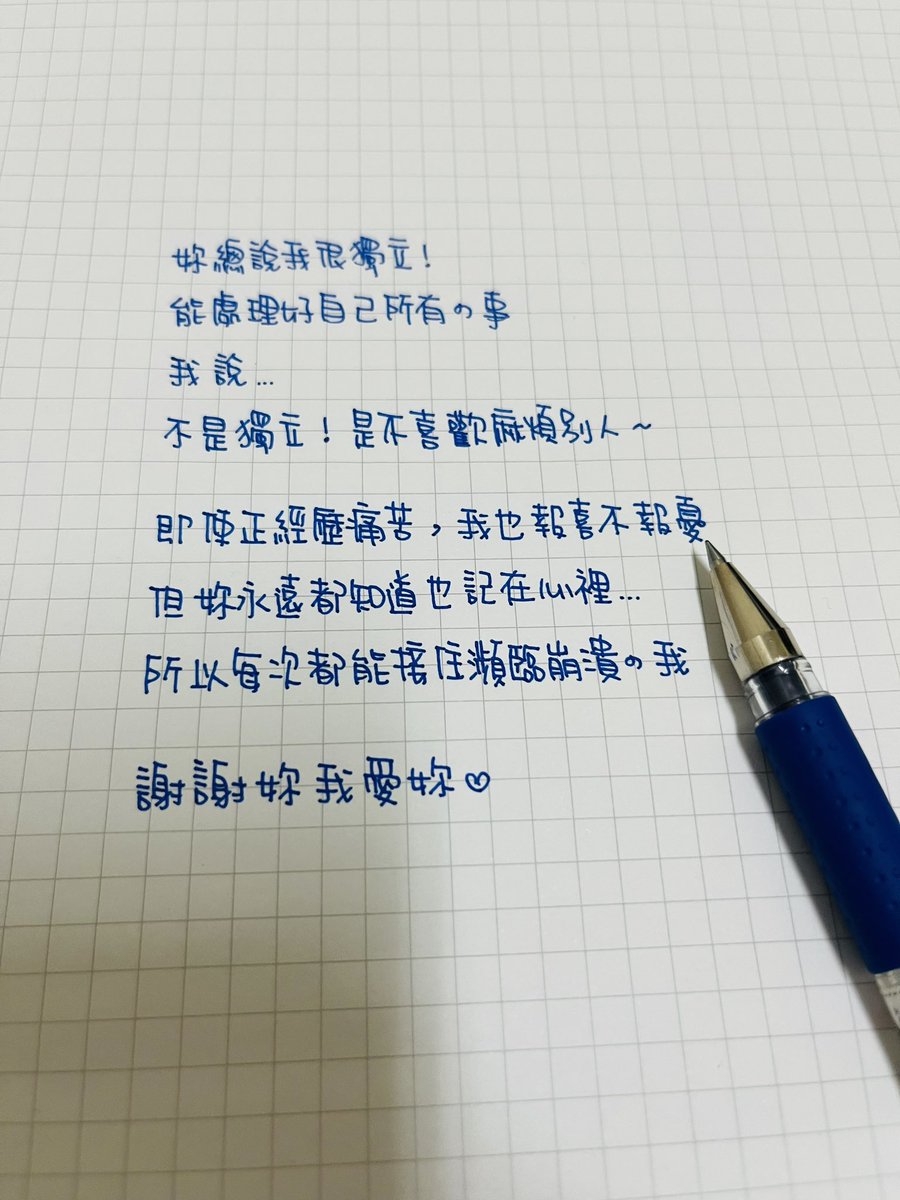 妳總說我很獨立!
能處理好自己所有の事
我說...
不是獨立!是不喜歡麻煩別人~
即使正經歷痛苦,我也報喜不報憂
但妳永遠都知道也記在心裡...
所以每次都能接住瀕臨崩潰の我
謝謝妳我愛妳♡